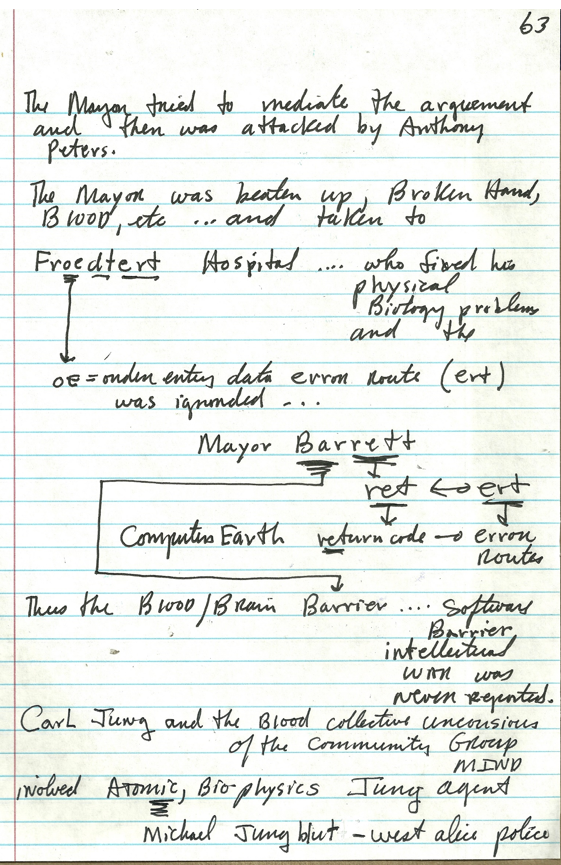 63
The Mayor tried to mediate the arguement
and then was attacked by Anthony
Peters.
The Mayor was beaten up, Broken Hand,
Blood, etc ... and taken to
Froedtert Hospital .... who fixed his
physical
Biology problems
and the
OE = order entry data error route (ert)
was ignorded ...
Mayor Barrett
ret ↔ ert
Computers Earth return code → error
routes
Thus the Blood/Brain Barrier .... Software
Barrier
intellectual
war was
never reported.
Carl Jung and the Blood collective unconsious
of the community Group
MIND
involved Atomic, Bio-physics Jung agent
Michael Jungblut - west alice police